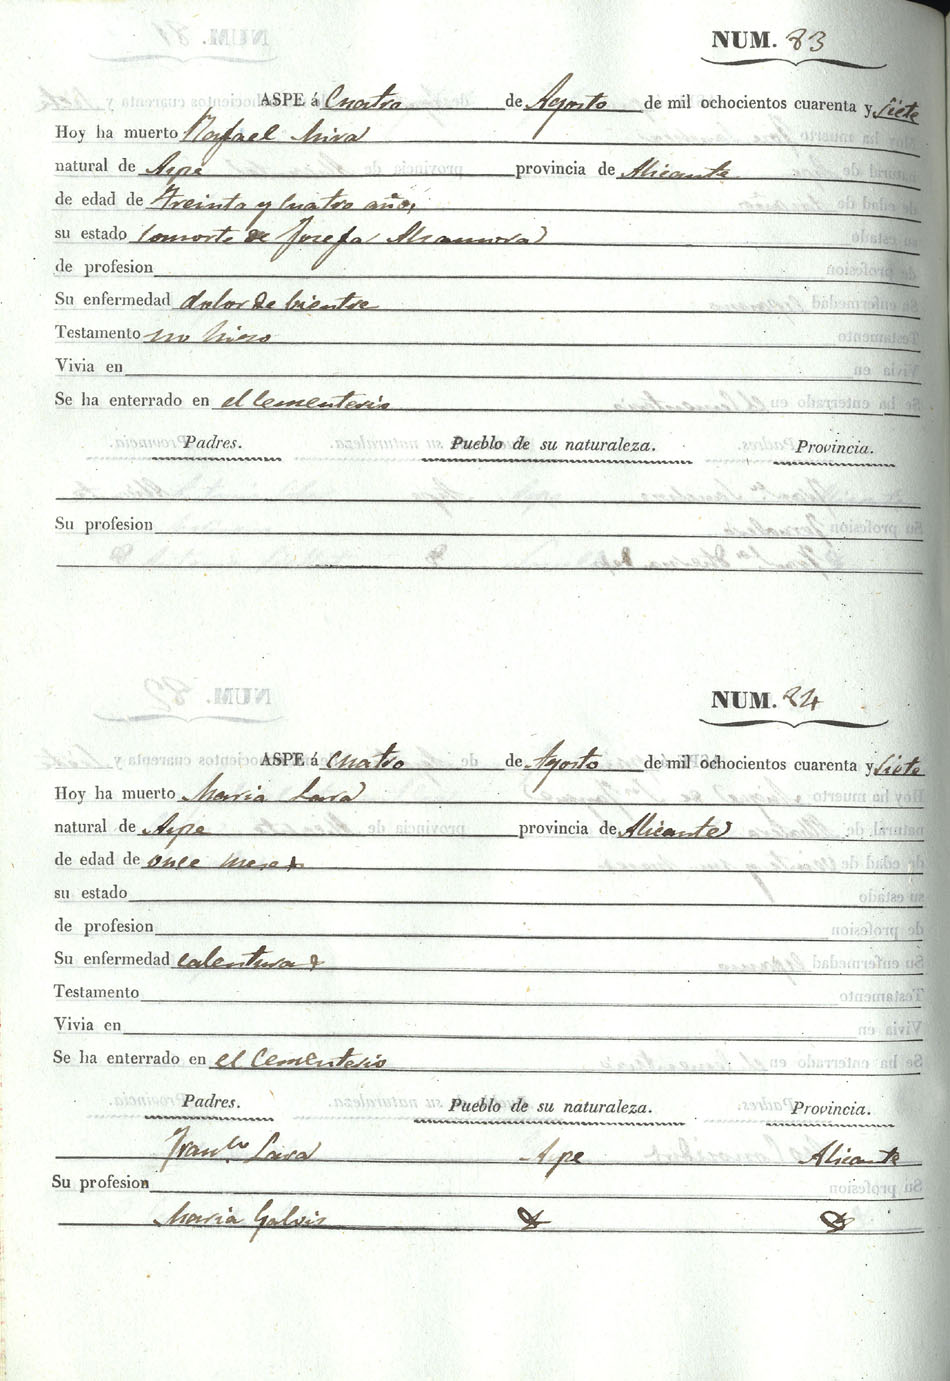 NUM. 83
ASPE á Cuatro de Agosto de mil ochocientos cuarenta y Siete
Hoy ha muerto Rafael Mira
natural de Aspe provincia de Alicante
de edad de treinta y cuatro años
su estado consorte de Josefa
de profesion
Su enfermedad dolor de bientre
Testamento no hiso
Vivia en
Se ha enterrado en el Cementerio
Padres. Pueblo de su naturaleza. Provincia.
Su profesion
NUM. 84
ASPE á Cuatro de Agosto de mil ochocientos cuarenta y Siete
Hoy ha muerto Maria Lara
natural de Aspe provincia de Alicante
de edad de once meses
su estado
de profesion
Su enfermedad calentura
Testamento
Vivia en
Se ha enterrado en el Cementerio
Padres. Pueblo de su naturaleza. Provincia.
Franco Lara Aspe Alicante
Su profesion
Maria Galvis